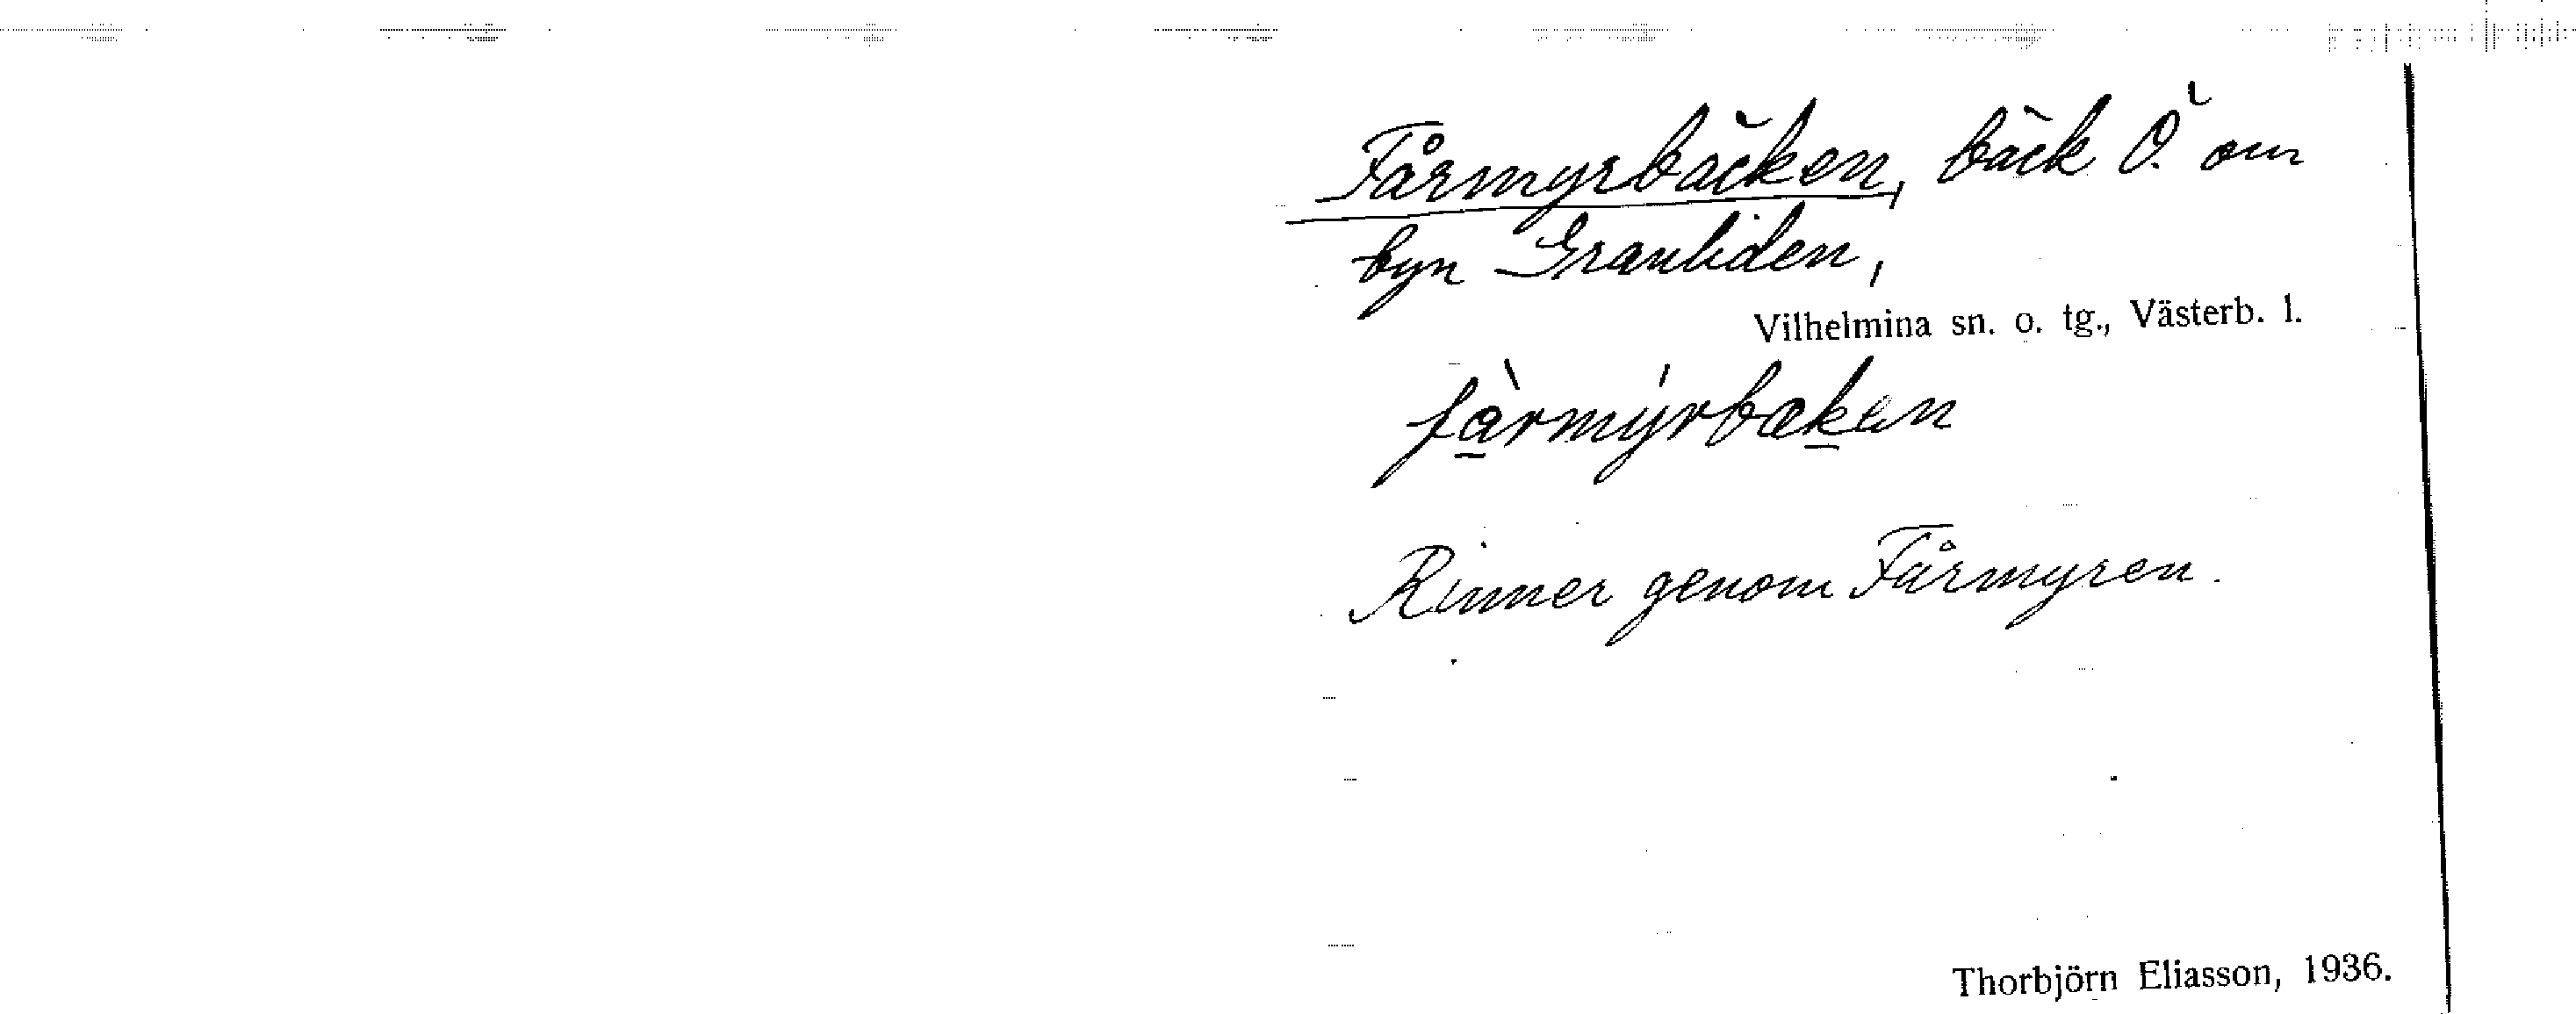 Fårmyrbäcken, bäck Ö. om
byn Granliden,
Vilhelmina sn. o. tg., Västerb. l.
få̠̀rmýrbæk̠en
Rinner genom Fårmyren.
Thorbjörn Eliasson, 1936.